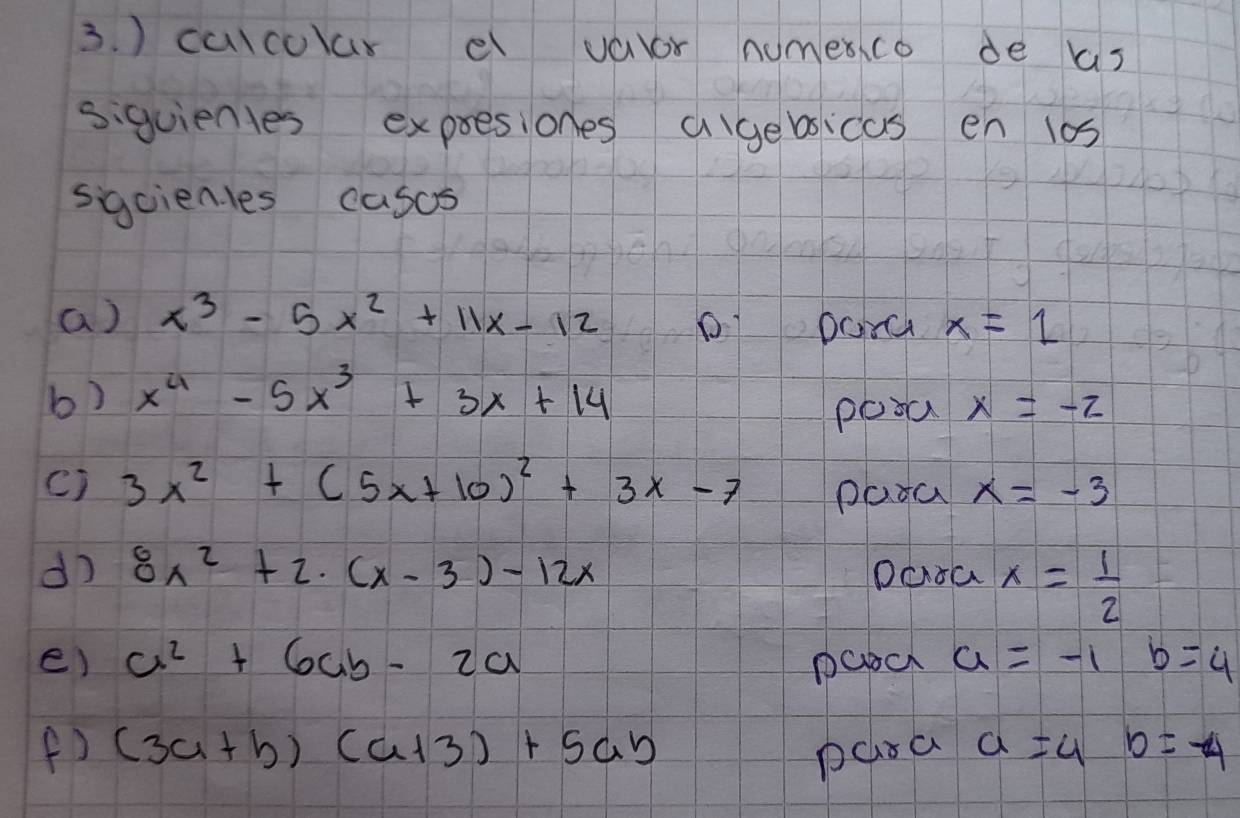 3.) calcular el valor numerico de las
siguientes expresiones algebricas en los
siguientes casos
a) x³ - 5x² + 11x - 12 p. para x = 1
b) x⁴ - 5x³ + 3x + 14 para x = -2
c) 3x² + (5x+10)² + 3x - 7 para x = -3
d) 8x² + 2. (x - 3) - 12x para x = 1/2
e) a² + 6ab - 2a para a = -1 b = 4
f) (3a + b) (a+3) + 5ab para a = 4 b = -4